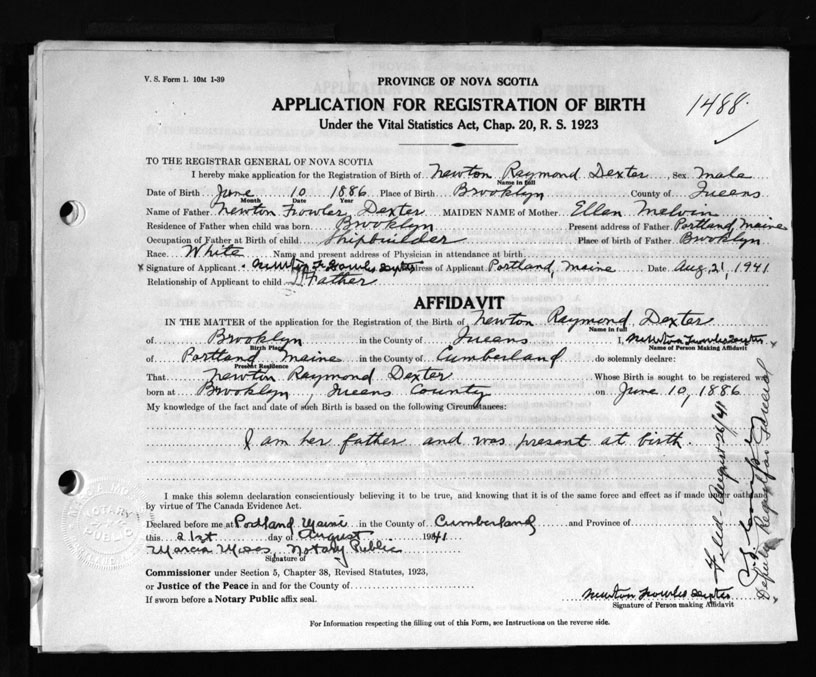 V. S. Form 1. 10M 1-39
PROVINCE OF NOVA SCOTIA
APPLICATION FOR REGISTRATION OF BIRTH
1488.
Under the Vital Statistics Act, Chap. 20, R. S. 1923
TO THE REGISTRAR GENERAL OF NOVA SCOTIA
I hereby make application for the Registration of Birth of Newton Raymond Dexter Sex Male
Name in full
Date of Birth June 10 1886 Place of Birth Brooklyn County of Queens
Month Date Year
Name of Father Newton Fowler Dexter MAIDEN NAME of Mother Ellen Melvin
Residence of Father when child was born Brooklyn Present address of Father Portland, Maine
Occupation of Father at Birth of child Shipbuilder Place of birth of Father Brooklyn
Race White Name and present address of Physician in attendance at birth
x Signature of Applicant Newton Fowler Dexter Address of Applicant Portland, Maine Date Aug. 21, 1941
Relationship of Applicant to child Father
AFFIDAVIT
IN THE MATTER of the application for the Registration of the Birth of Newton Raymond Dexter
Name in full
of Brooklyn in the County of Queens I, Newton Fowler Dexter x
Birth Place Name of Person Making Affidavit
of Portland Maine in the County of Cumberland do solemnly declare:
Present Residence
That Newton Raymond Dexter Whose Birth is sought to be registered was
born at Brooklyn, Queens County on June 10, 1886
My knowledge of the fact and date of such Birth is based on the following Circumstances:
I am her father and was present at birth.
I make this solemn declaration conscientiously believing it to be true, and knowing that it is of the same force and effect as if made under oath and
by virtue of The Canada Evidence Act.
Declared before me at Portland Maine in the County of Cumberland and Province of
this 21st day of August 1941
Notary Public
Signature of
Commissioner under Section 5, Chapter 38, Revised Statutes, 1923,
or Justice of the Peace in and for the County of
If sworn before a Notary Public affix seal.
Newton Fowler Dexter
Signature of Person making Affidavit
For Information respecting the filling out of this Form, see Instructions on the reverse side.
Filed August 26/41
Deputy Registrar General
NOTARY
PUBLIC